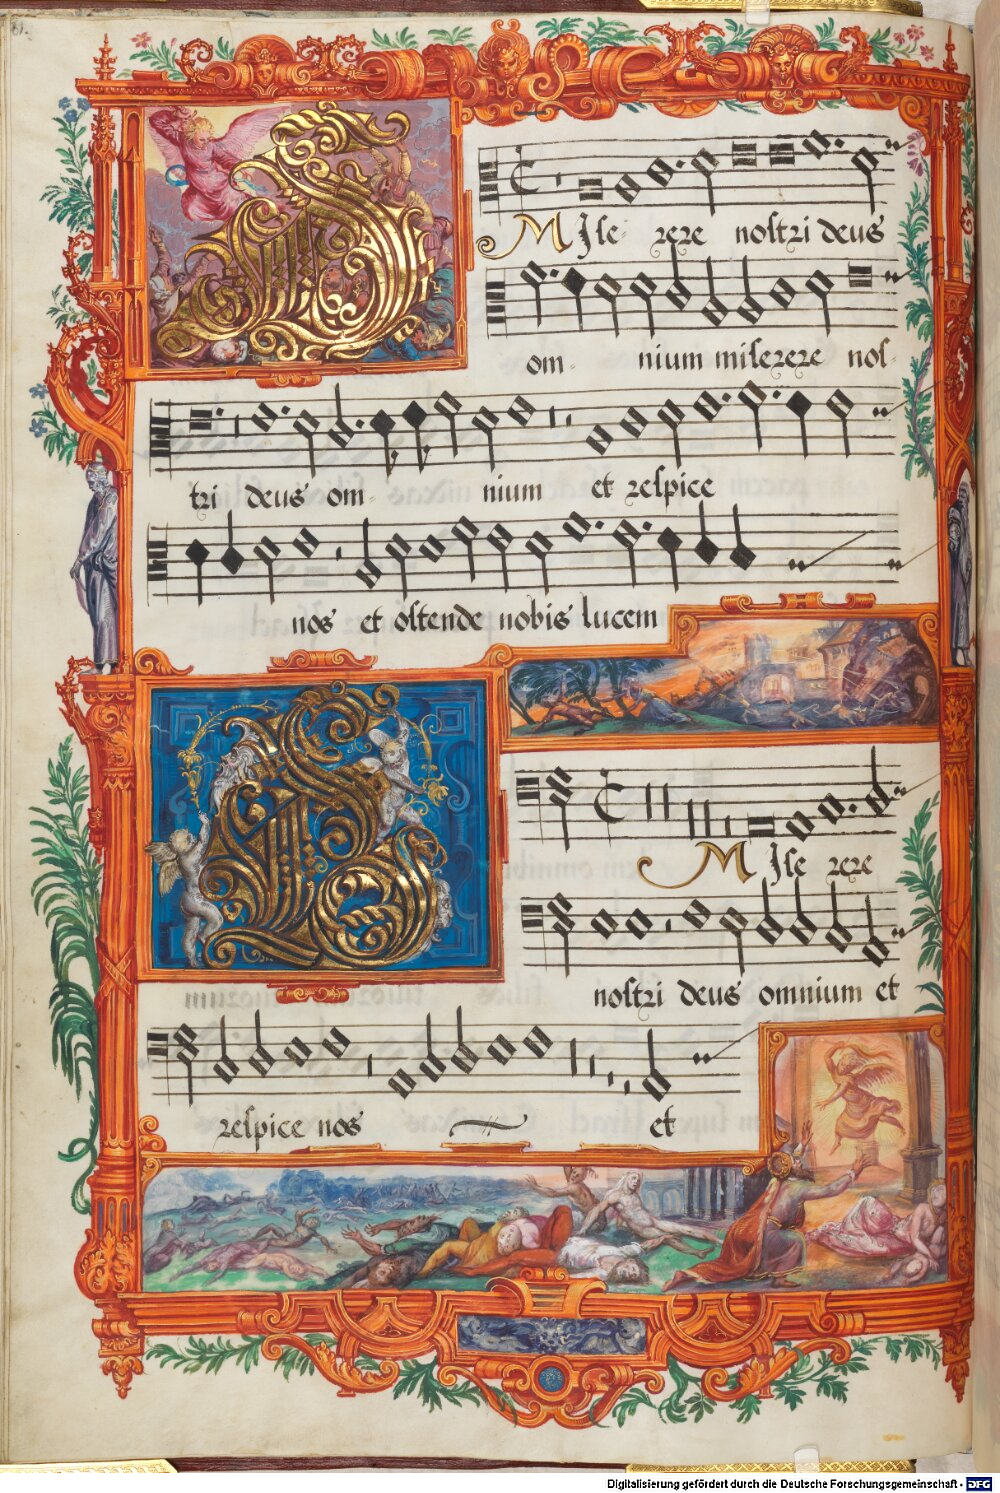 81.
MIse- rere nostri deus
om- nium miserere nos-
tri deus om- nium et respice
nos et ostende nobis lucem
MIse rere
nostri deus omnium et
respice nos et
Digitalisierung gefördert durch die Deutsche Forschungsgemeinschaft - DFG